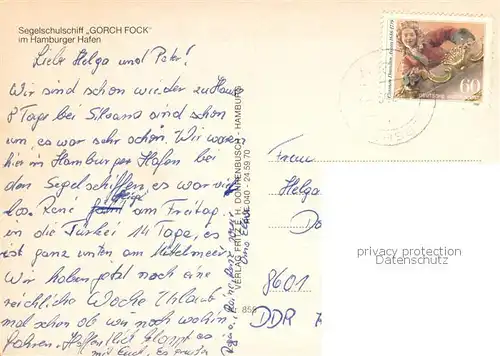 Segelschulschiff „GORCH FOCK"
im Hamburger Hafen
Liebe Helga und Peter!
Wir sind schon wieder zu Hause
8 Tage bei Silvana sind schon
um, es war sehr schön. Wir waren
hier im Hamburger Hafen bei
den Segelschiffen, es war viel
los. René fliegt am Freitag
in die Türkei 14 Tage, es
ist ganz unten am Mittelmeer
Wir haben jetzt noch eine
reichliche Woche Urlaub
mal sehen ob wir noch wohin
fahren. Hoffentlich klappt es
mit Euch. Es
VERLAG FRITZ E. H. DORRENBUSCH - HAMBURG
040 - 24 59 70
858
DEUTSCHE
60
Frau
Helga
Do
8601
DDR
privacy protection
Datenschutz